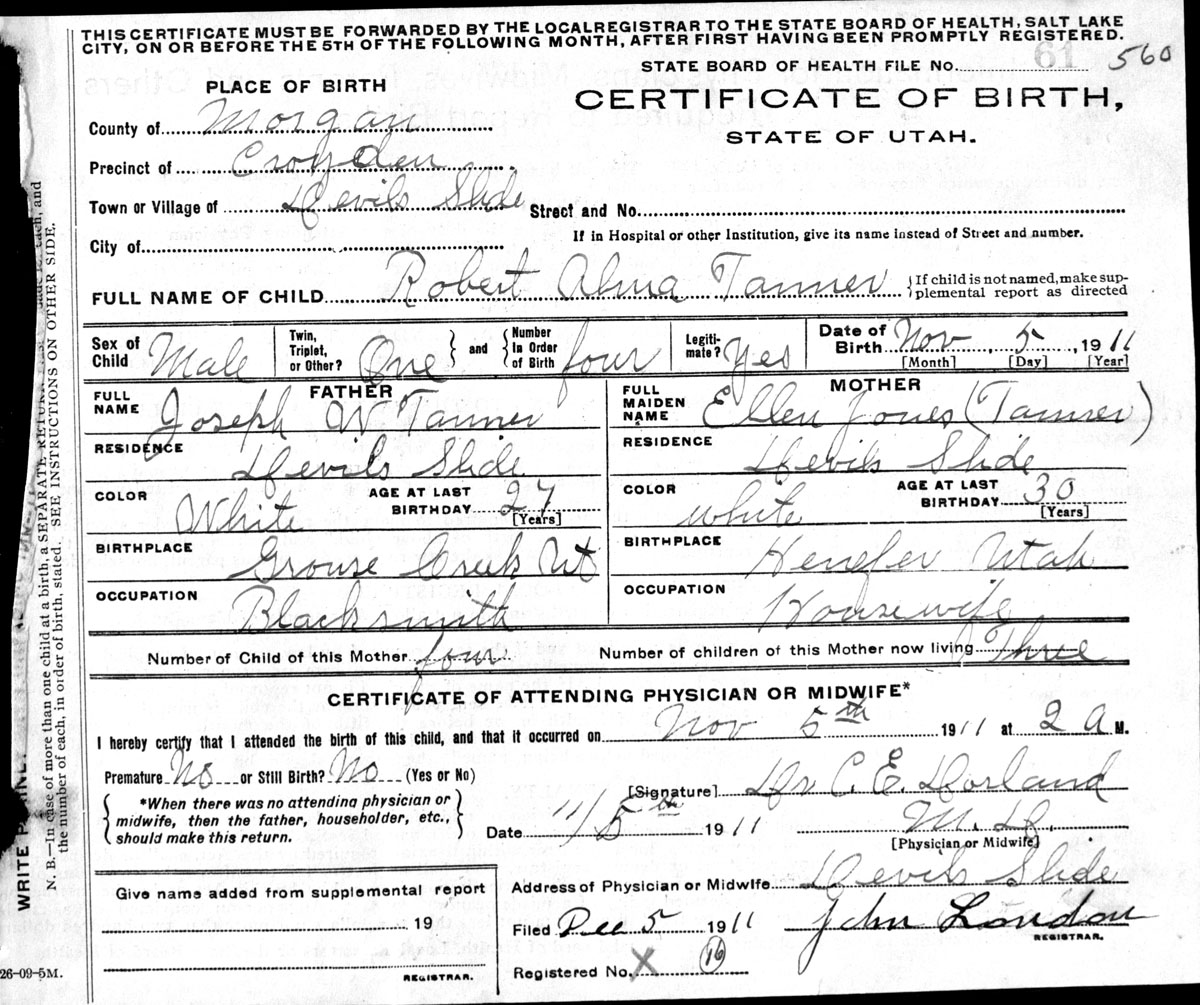 THIS CERTIFICATE MUST BE FORWARDED BY THE LOCAL REGISTRAR TO THE STATE BOARD OF HEALTH, SALT LAKE
CITY, ON OR BEFORE THE 5TH OF THE FOLLOWING MONTH, AFTER FIRST HAVING BEEN PROMPTLY REGISTERED.
STATE BOARD OF HEALTH FILE No. 61 560
PLACE OF BIRTH
CERTIFICATE OF BIRTH,
STATE OF UTAH.
County of Morgan
Precinct of Croyden
Town or Village of Devils Slide
Street and No.
City of
If in Hospital or other Institution, give its name instead of Street and number.
FULL NAME OF CHILD Robert Alma Tanner {If child is not named, make sup-
plemental report as directed
Sex of Child Male
Twin, Triplet, or Other? One } and { Number In Order of Birth four
Legiti-mate? Yes
Date of Birth Nov 5, 1911
[Month] [Day] [Year]
FATHER
FULL NAME Joseph W Tanner
MOTHER
FULL MAIDEN NAME Ellen Jones (Tanner)
RESIDENCE Devils Slide
RESIDENCE Devils Slide
COLOR White AGE AT LAST BIRTHDAY 27 [Years]
COLOR White AGE AT LAST BIRTHDAY 30 [Years]
BIRTHPLACE Grouse Creek Ut
BIRTHPLACE Henefer Utah
OCCUPATION Blacksmith
OCCUPATION Housewife
Number of Child of this Mother four Number of children of this Mother now living Three
CERTIFICATE OF ATTENDING PHYSICIAN OR MIDWIFE*
I hereby certify that I attended the birth of this child, and that it occurred on Nov 5th 1911 at 2 A M.
Premature No or Still Birth? No (Yes or No)
{*When there was no attending physician or
midwife, then the father, householder, etc.,
should make this return.}
[Signature] Dr C. E. Dorland
Date 11/5th 1911 M. D.
[Physician or Midwife]
Give name added from supplemental report
19
REGISTRAR.
Address of Physician or Midwife Devils Slide
Filed Dec 5 1911 John London
REGISTRAR.
Registered No. X 16
26-09-5M.
WRITE
N. B.—In case of more than one child at a birth, a SEPARATE RETURN made each, and
the number of each, in order of birth, stated. SEE INSTRUCTIONS ON OTHER SIDE.